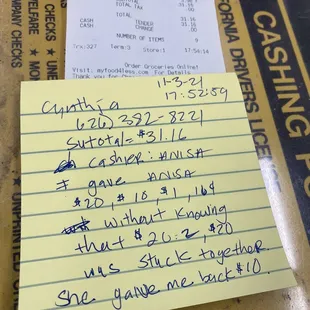 SUBTOTAL 31.16
TOTAL TAX .00
TOTAL 31.16
CASH TENDER 31.16
CASH CHANGE .00
NUMBER OF ITEMS
Trx:327 Term:3 Store:1 17:54:14
Order Groceries Online!
Visit: myfood4less.com For Details
Thank you for
COMPANY CHECKS
UNPRINTED
CALIFORNIA DRIVERS LICENSE
CASHING PO
11-3-21
Cynthia 17:52:59
626) 382-8221
Subtotal= $31.16
Cashier: ANISA
I gave ANISA
$20, $10, $1, 16¢
without knowing
that $20:2, $20
was stuck together.
She gave me back $10.